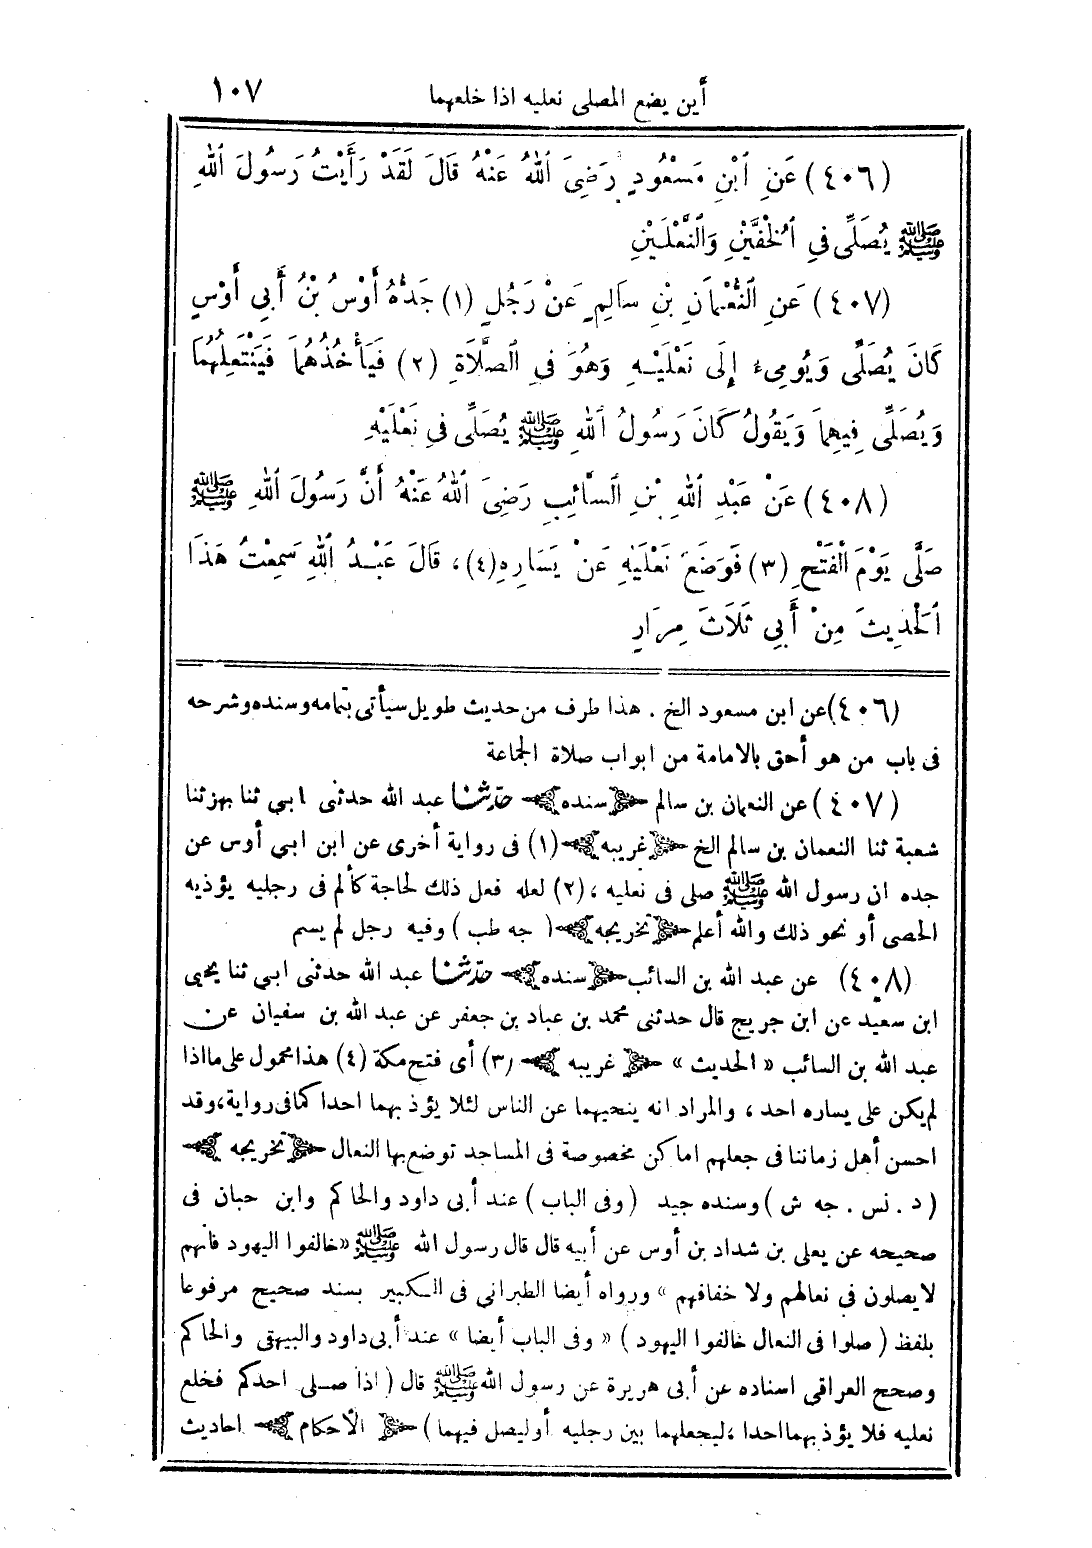 أين يضع المصلى نعليه اذا خلعهما ١٠٧
(٤٠٦) عَنِ ٱبْنِ مَسْعُودٍ رَضِيَ ٱللهُ عَنْهُ قَالَ لَقَدْ رَأَيْتُ رَسُولَ ٱللهِ
ﷺ يُصَلِّى فِي ٱلْخُفَّيْنِ وَٱلنَّعْلَيْنِ
(٤٠٧) عَنِ ٱلنُّعْمَانِ بْنِ سَالِمٍ عَنْ رَجُلٍ (١) جَدُّهُ أَوْسُ بْنُ أَبِي أَوْسٍ
كَانَ يُصَلِّى وَيُومِىءُ إِلَى نَعْلَيْهِ وَهُوَ فِي ٱلصَّلَاةِ (٢) فَيَأْخُذُهُمَا فَيَنْتَعِلُهُمَا
وَيُصَلِّى فِيهِمَا وَيَقُولُ كَانَ رَسُولُ ٱللهِ ﷺ يُصَلِّى فِى نَعْلَيْهِ
(٤٠٨) عَنْ عَبْدِ ٱللهِ بْنِ ٱلسَّائِبِ رَضِيَ ٱللهُ عَنْهُ أَنَّ رَسُولَ ٱللهِ ﷺ
صَلَّى يَوْمَ ٱلْفَتْحِ (٣) فَوَضَعَ نَعْلَيْهِ عَنْ يَسَارِهِ (٤)، قَالَ عَبْدُ ٱللهِ سَمِعْتُ هَذَا
ٱلْحَدِيثَ مِنْ أَبِي ثَلَاثَ مِرَارٍ
(٤٠٦) عن ابن مسعود الخ . هذا طرف من حديث طويل سيأتى بتمامه وسنده وشرحه
فى باب من هو أحق بالامامة من ابواب صلاة الجماعة
(٤٠٧) عن النعمان بن سالم ﴿سنده﴾ حدثنا عبد الله حدثنى ابى ثنا بهز ثنا
شعبة ثنا النعمان بن سالم الخ ﴿غريبه﴾ (١) فى رواية أخرى عن ابن ابى أوس عن
جده ان رسول الله ﷺ صلى فى نعليه ، (٢) لعله فعل ذلك لحاجة كألم فى رجليه يؤذيه
الحصى أو نحو ذلك والله أعلم ﴿تخريجه﴾ ( جه طب ) وفيه رجل لم يسم
(٤٠٨) عن عبد الله بن السائب ﴿سنده﴾ حدثنا عبد الله حدثنى ابى ثنا يحيى
ابن سعيد عن ابن جريج قال حدثنى محمد بن عباد بن جعفر عن عبد الله بن سفيان عن
عبد الله بن السائب « الحديث » ﴿غريبه﴾ (٣) أى فتح مكة (٤) هذا محمول على ما اذا
لم يكن على يساره احد ، والمراد انه ينحيهما عن الناس لئلا يؤذ بهما احدا كما فى رواية، وقد
احسن أهل زماننا فى جعلهم اماكن مخصوصة فى المساجد توضع بها النعال ﴿تخريجه﴾
( د . نس . جه ش ) وسنده جيد (وفى الباب) عند أبى داود والحاكم وابن حبان فى
صحيحه عن يعلى بن شداد بن أوس عن أبيه قال قال رسول الله ﷺ « خالفوا اليهود فانهم
لا يصلون فى نعالهم ولا خفافهم » ورواه أيضا الطبرانى فى الكبير بسند صحيح مرفوعا
بلفظ ( صلوا فى النعال خالفوا اليهود ) « وفى الباب أيضا » عند أبى داود والبيهقى والحاكم
وصحح العراقى اسناده عن أبى هريرة عن رسول الله ﷺ قال ( اذا صلى احدكم فخلع
نعليه فلا يؤذ بهما احدا ، ليجعلهما بين رجليه أو ليصل فيهما ) ﴿الأحكام﴾ احاديث